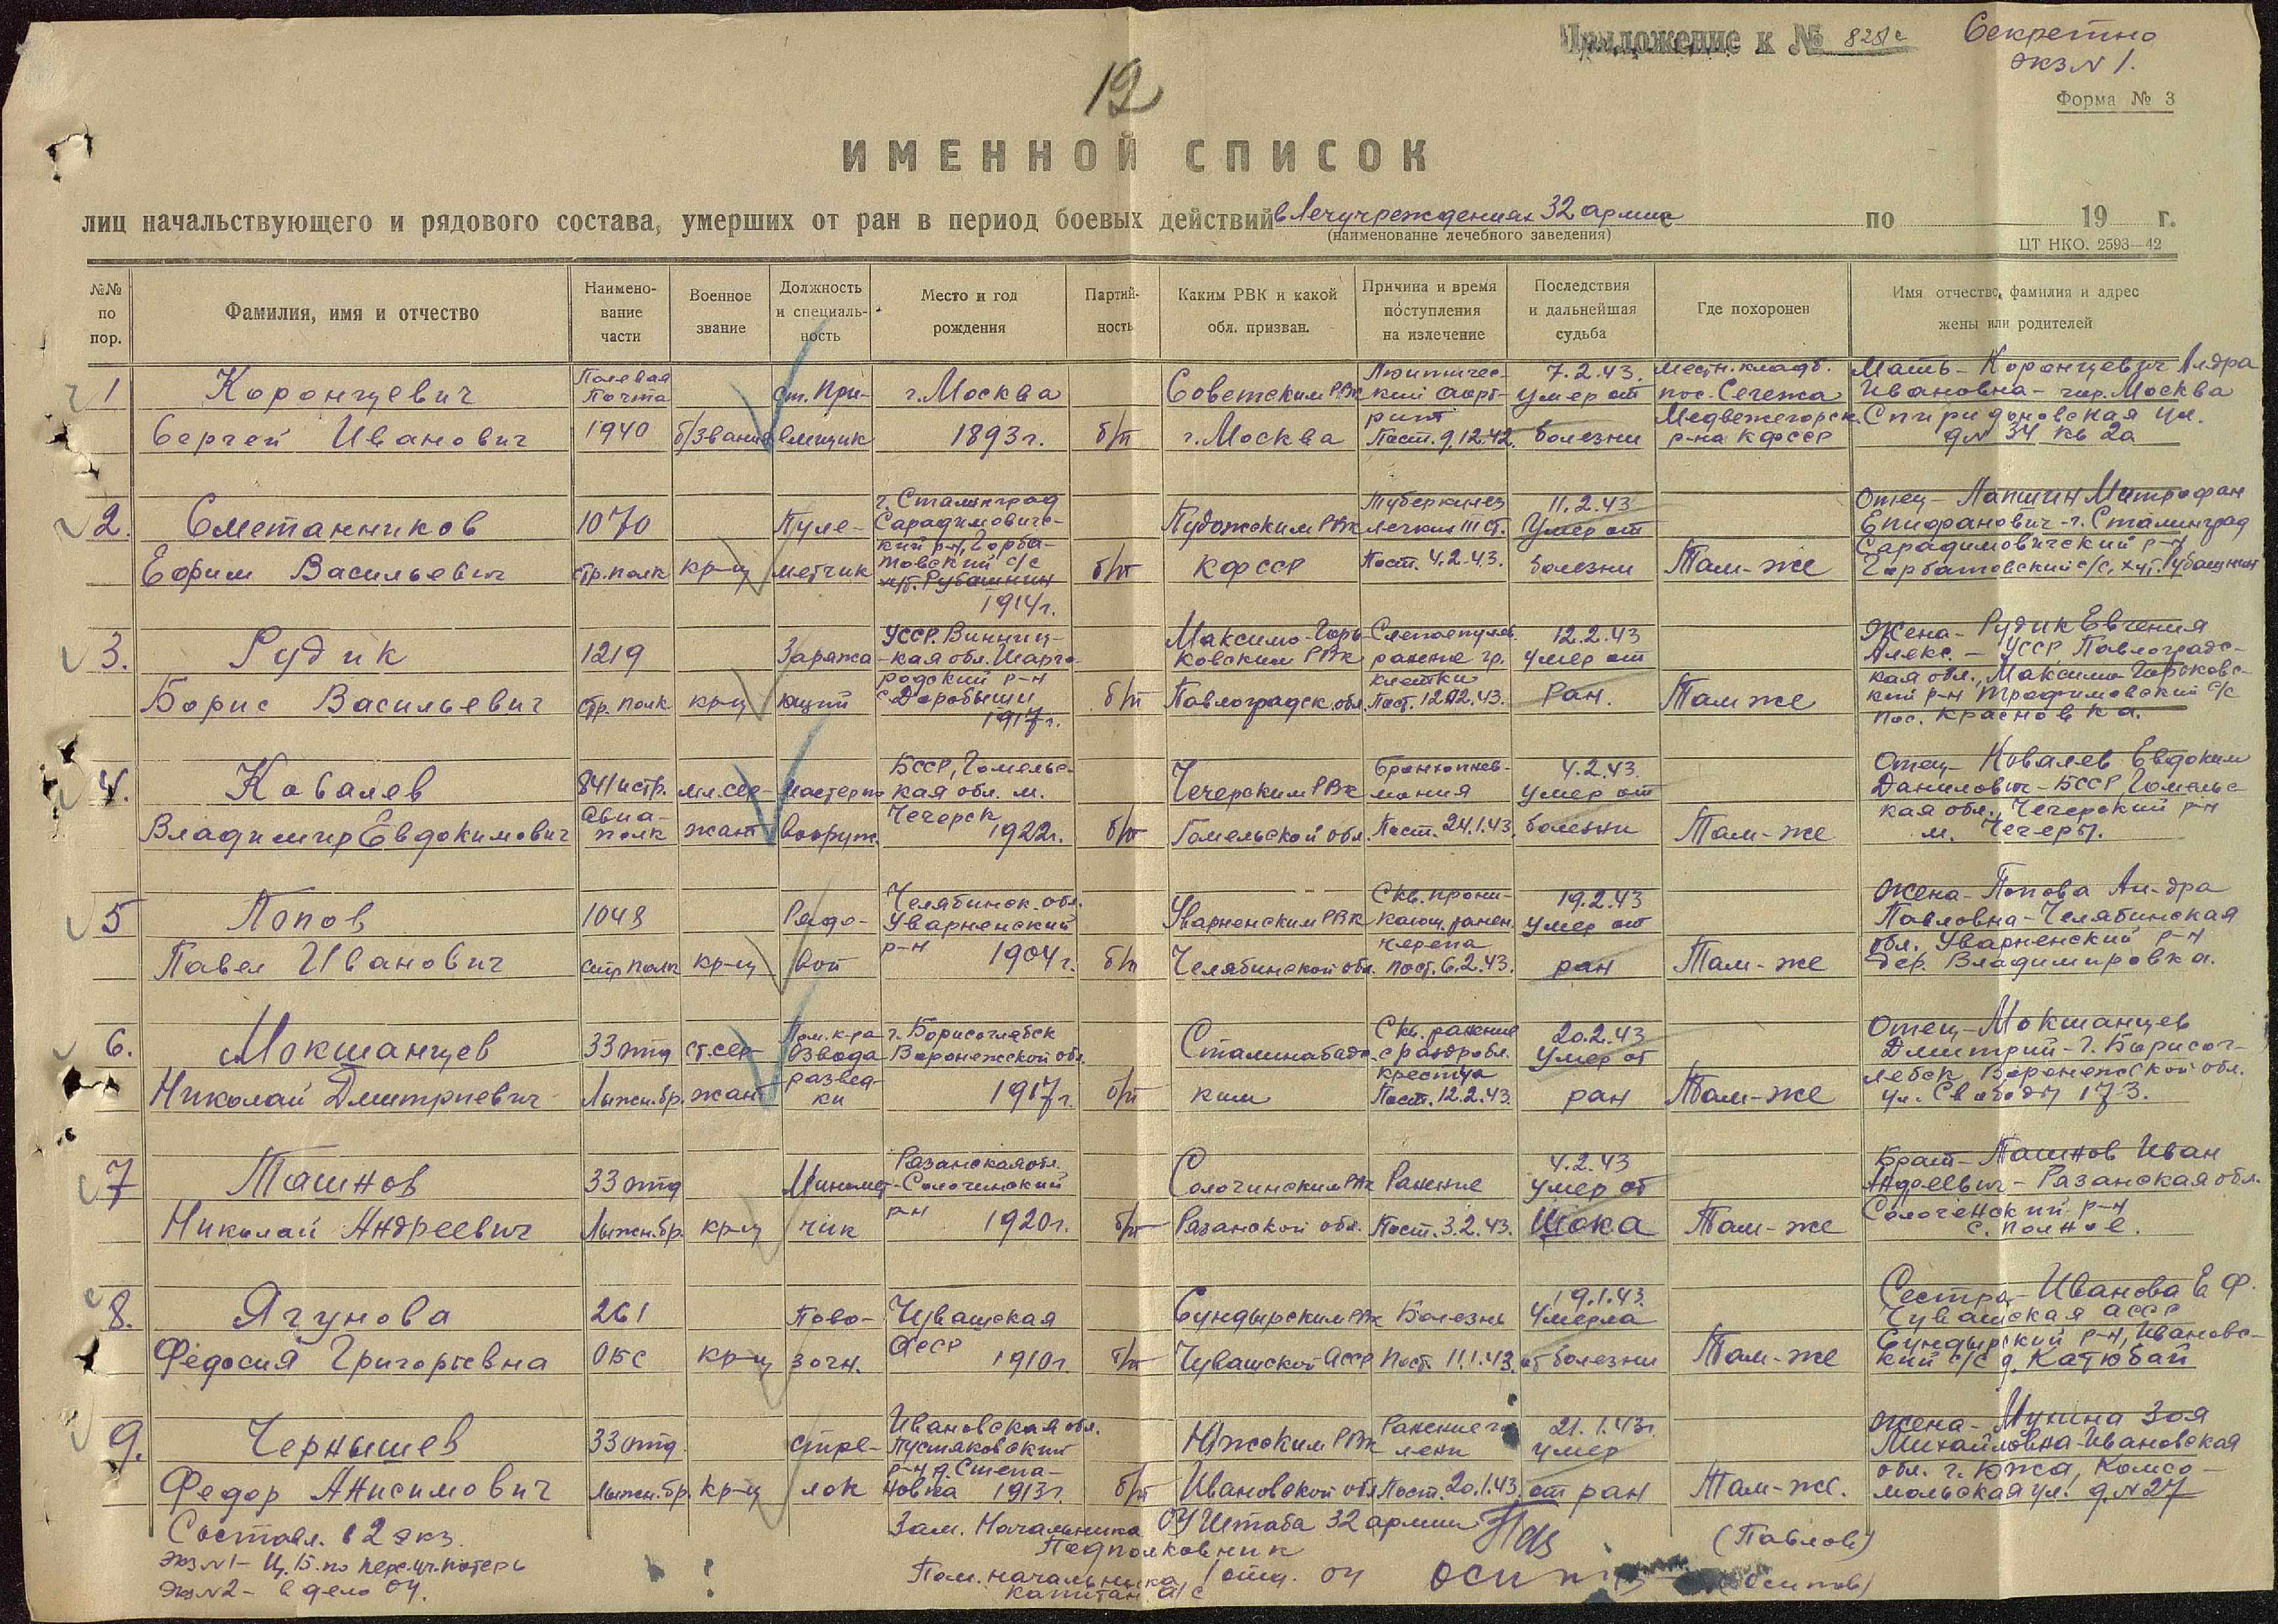 Приложение к № 828/с
Секретно
экз N 1.
Форма № 3
12
ИМЕННОЙ СПИСОК
лиц начальствующего и рядового состава, умерших от ран в период боевых действий в Лечучреждениях 32 армии с по 19 г.
(наименование лечебного заведения)
ЦТ НКО. 2593—42
№№ по пор.
Фамилия, имя и отчество
Наименование части
Военное звание
Должность и специальность
Место и год рождения
Партийность
Каким РВК и какой обл. призван.
Причина и время поступления на излечение
Последствия и дальнейшая судьба
Где похоронен
Имя отчество, фамилия и адрес жены или родителей
1
Коронцевич
Сергей Иванович
Полевая
Почта
1940
б/звания
ст. При-
емщик
г. Москва
1893г.
б/п
Советским РВК
г. Москва
Пост. 9.12.42.
7.2.43.
Умер от
болезни
Местн. кладб.
пос. Сегежа
Медвежегорск.
р-на КФССР
Мать - Коронцевич
Ивановна - гор. Москва
Спиридоновская ул.
д N 34 кв 2а
2.
Сметанников
Ефим Васильевич
1070
стр. полк
кр-ц
Пуле-
метчик
г. Сталинград
кий р-н, Горба-
товский с/с
хут. Рубашкин
1914г.
б/п
Пудожским РВК
КФССР
Туберкулез
легких III ст.
Пост. 4.2.43.
11.2.43
Умер от
болезни
Там-же
Отец - Лапшин Митрофан
Епифанович - г. Сталинград
р-н
Горбатовский с/с, хут. Рубашкин
3.
Рудик
Борис Васильевич
1219
стр. полк
кр-ц
Заряжа
ющий
УССР. Винниц-
кая обл. Шарго-
родский р-н
1917г.
б/п
Максимо-Горь-
ковским РВК
Павлоградск. обл.
Слепое пулев.
ранение гр.
клетки
12.2.43
Умер от
Ран.
Там же
Жена - Рудик Евгения
Алекс. - УССР Павлоградс-
кая обл., Максимо-Горьковс-
кий р-н Трофимовский с/с
пос. Красновка.
4.
Ковалев
Владимир Евдокимович
841 истр.
Авиа-
полк
мл. сер-
жант
мастер по
вооруж.
БССР, Гомельс-
кая обл. м.
Чечерск
1922г.
б/п
Чечерским РВК
Гомельской обл.
Бронхопнев-
мония
Пост. 24.1.43.
4.2.43.
Умер от
болезни
Там-же
Отец - Ковалев Евдоким
Данилович - БССР, Гомельс-
кая обл., Чечерский р-н
м.
5
Попов
Павел Иванович
1048
стр полк
кр-ц
Рядо-
вой
Челябинск. обл.
Уварненский
р-н
1904г.
б/п
Уварненским РВК
Челябинской обл.
Скв. прони-
кающ. ранен.
черепа
Пост. 6.2.43.
19.2.43
Умер от
ран
Там-же
Жена - Попова Ал-дра
Павловна - Челябинская
обл. Уварненский р-н
дер. Владимировка.
6.
Мокшанцев
Николай Дмитриевич
33 отд
Лыжн. бр.
ст. сер-
жант
Пом. к-ра
взвода
развед-
ки
г. Борисоглебск
Воронежской обл.
1917г.
б/п
Сталинабадс-
ким
Скв. ранение
с раздробл.
крестца
Пост. 12.2.43.
20.2.43
Умер от
ран
Там-же
Отец - Мокшанцев
Дмитрий - г. Борисог-
лебск Воронежской обл.
ул. Свободы 173.
7
Ташнов
Николай Андреевич
33 отд
Лыжн. бр.
кр-ц
Миномет-
чик
Рязанская обл.
Солочинский
р-н
1920г.
б/п
Солочинским РВК
Рязанской обл.
Ранение
Пост. 3.2.43.
4.2.43
Умер от
Шока
Там-же
Брат - Ташнов Иван
Андреевич - Рязанская обл.
Солоченский р-н
с. Полное.
8.
Ягунова
Федосия Григорьевна
261
ОБС
кр-ц
Пово-
зочн.
Чувашская
АССР
1910г.
б/п
Сундырским РВК
Чувашской АССР
Болезнь
Пост. 11.1.43.
19.1.43.
Умерла
от болезни
Там-же
Сестра - Иванова Е Ф.
Чувашская АССР
Сундырский р-н, Ивановс-
кий с/с д. Катюбай
9.
Чернышев
Федор Анисимович
33 отд.
Лыжн. бр.
кр-ц
Стре-
лок
Ивановская обл.
Пустяковский
р-н д. Степа-
новка 1913г.
б/п
Южским РВК
Ивановской обл
Ранение го-
лени
Пост. 20.1.43.
21.1.43г.
умер
от ран
Там-же.
Жена - Мунина Зоя
Михайловна - Ивановская
обл. г. Южа, Комсо-
мольская ул. д. N 27
Составл. в 2 экз.
экз N 1 - Ц. Б. по перс. уч. потерь
экз N 2 - в дело ОУ.
Зам. Начальника ОУ Штаба 32 армии
Подполковник
(Павлов)
Пом. начальника 1 отд. ОУ
капитан а/с
(Осипов)